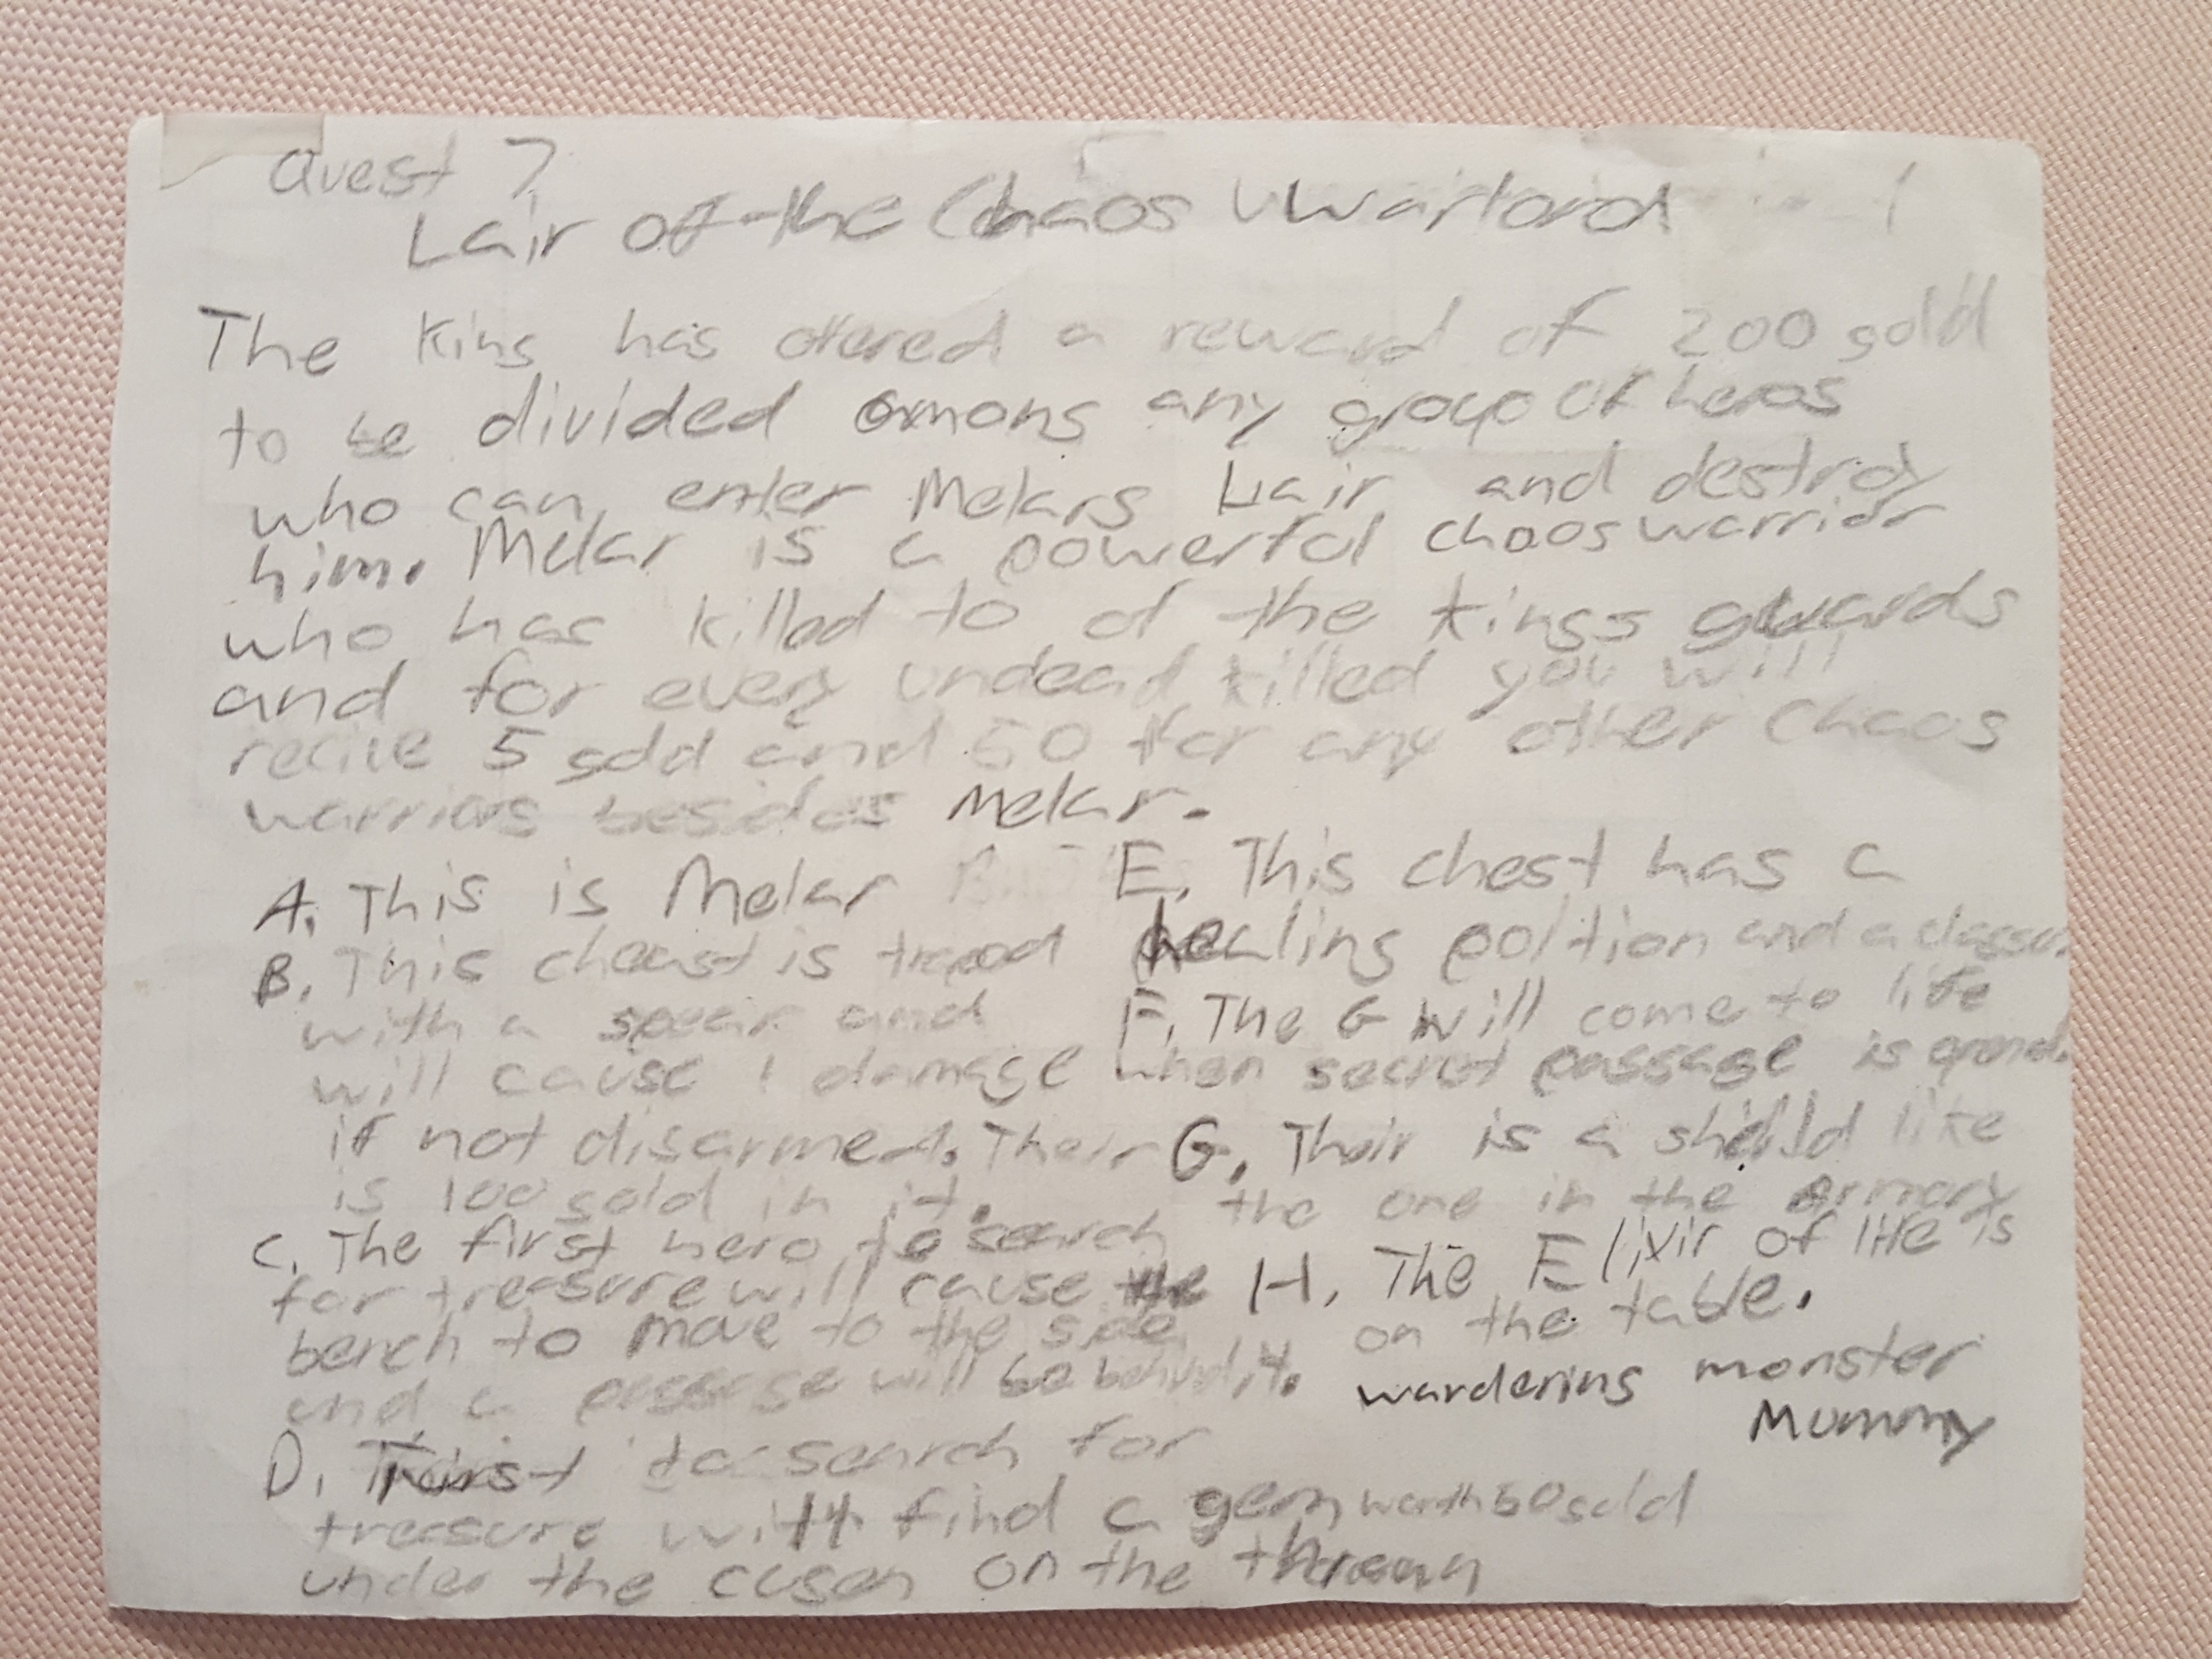 Quest 7
Lair of the Chaos Warlord
The King has offered a reward of 200 gold
to be divided among any group of heros
who can enter Melars Lair and destroy
him. Melar is a powerful chaos warrior
who has killed to of the kings guards
and for every undead killed you will
recive 5 gold and 50 for any other chaos
warriors besides Melar.
A. This is Melar
B. This cheast is traped
with a spear and
will cause 1 damage
if not disarmed. Their
is 100 gold in it.
C. The first hero to search
for treasure will cause the
bench to move to the side
and a passage will be behind it.
D. First to search for
treasure will find a gem worth 50 gold
under the cusen on the
E. This chest has a
healing poltion and a
F. The G will come to life
when secret passage is opend.
G. Their is a shield like
the one in the armory
H. The Elixir of life is
on the table.
wandering monster
Mummy